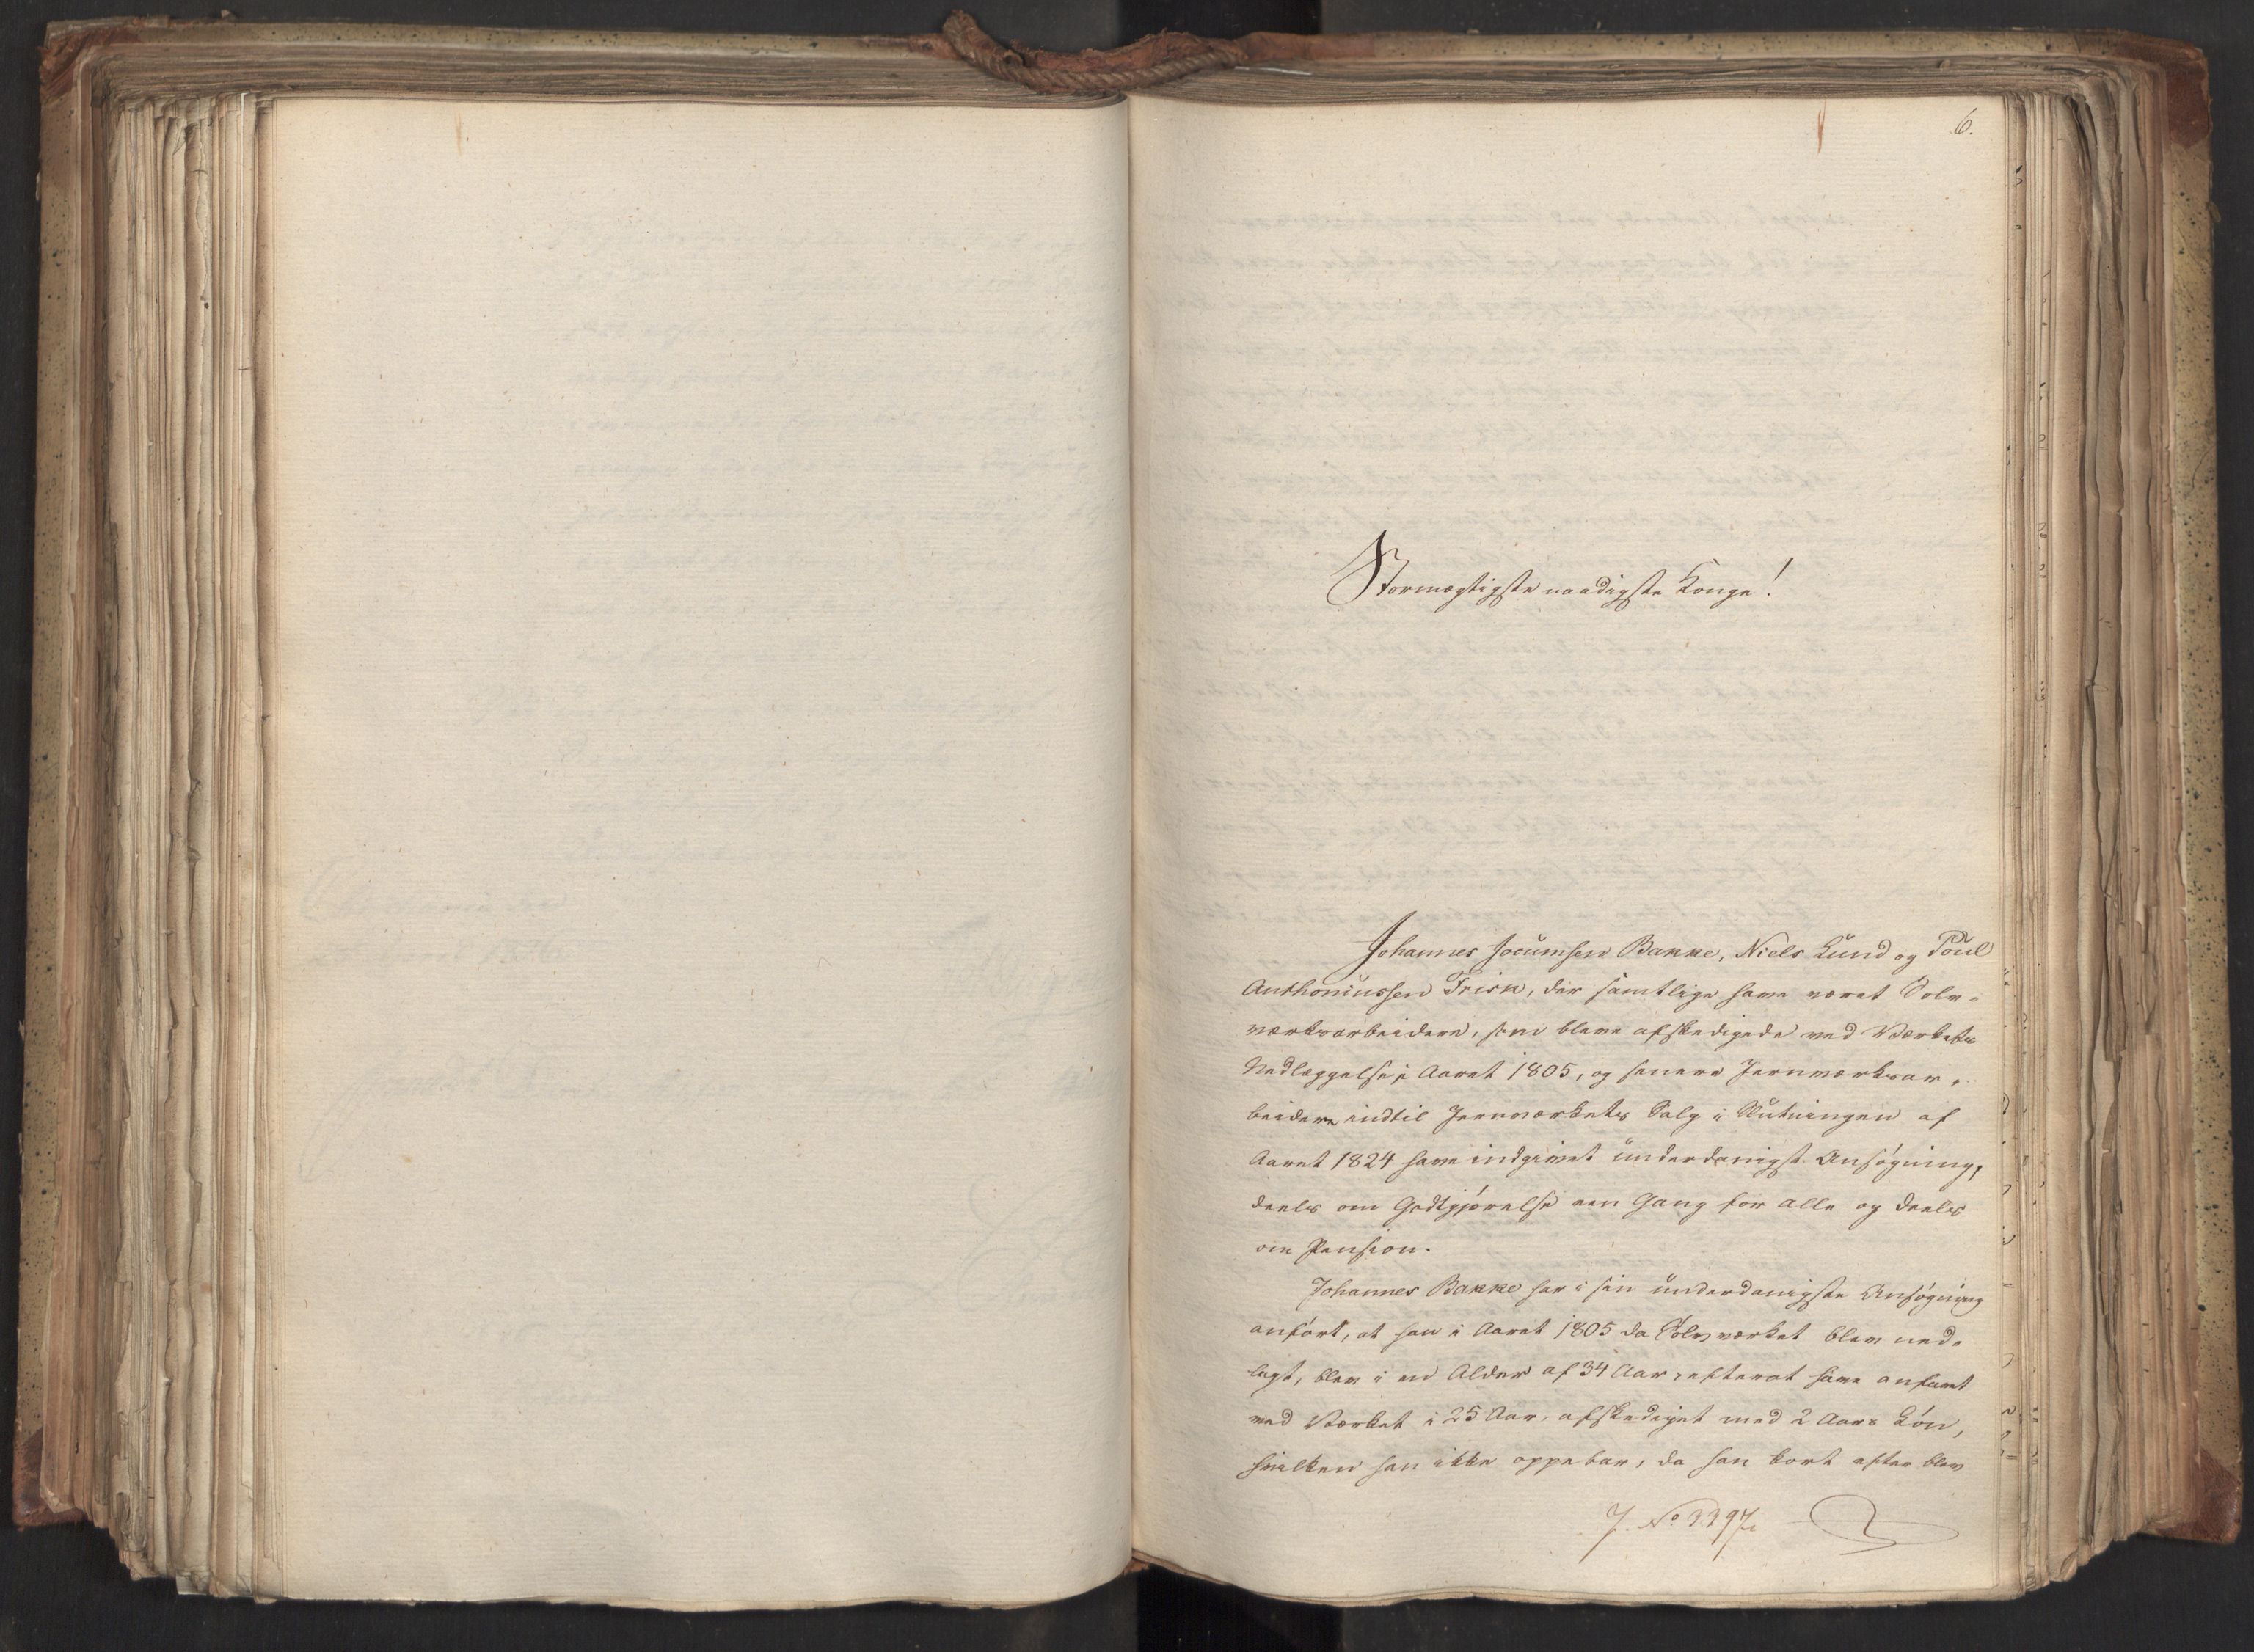 6.
Stormægtigste naadigste Konge!
Johannes Jocumsen Bakke, Niels Lund og Poul
Anthoniussen Frisk, der samtlige have været Sølv-
værksarbeidere, som bleve afskedigede ved Værkets
Nedlæggelse i Aaret 1805, og senere Jernværksar-
beidere indtil Jernværkets Salg i Slutningen af
Aaret 1824 have indgivet underdanigst Ansøgning,
deels om Godtgjørelse een Gang for alle og deels
om Pension.
Johannes Bakke har i sin underdanigste Ansøgning
anført, at han i Aaret 1805 da Sølvværket blev ned-
lagt, blev i en Alder af 34 Aar, efterat have anfaret
ved Værket i 25 Aar, afskediget med 2 Aars Løn,
hvilken han ikke oppebar, da han kort efter blev
J. No 3397/